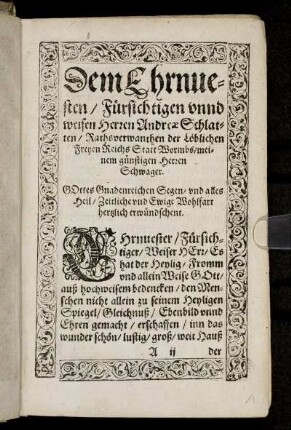 Dem Ehrnue-
sten / Fürsichtigen vnnd
weisen Herren Andreæ Schlat-
ten / Rathsverwanthen der Löblichen
Freyen Reichs Statt Wormbs / mei-
nem günstigen Herren
Schwager.
GOttes Gnadenreichen Segen / vnd alles
Heil / Zeitliche vnd Ewige Wohlfart
hertzlich erwündschent.
EHrnuester / Fürsich-
tiger / Weiser HErr / Es
hat der Heylig / Fromm
vnd allein Weise GOtt /
auß hochweisem bedencken / den Men-
schen nicht allein zu seinem Heyligen
Spiegel / Gleichnuß / Ebenbild vnnd
Ehren gemacht / erschaffen / inn das
wunder schön / lustig / groß / weit Hauß
A ij der